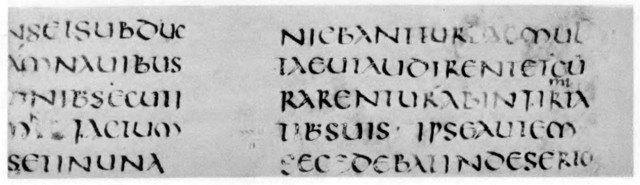 NSETSUBDUC
AMNAUIBUS
MNIBSECUTI
FACTUM
SETINUNA
NIEBANTTURBAEMUL
TAEUTAUDIRENTETCU
RARENTURABINFIRMITA
TIBSUIS · IPSEAUTEM
SECEDEBATINDESERTO